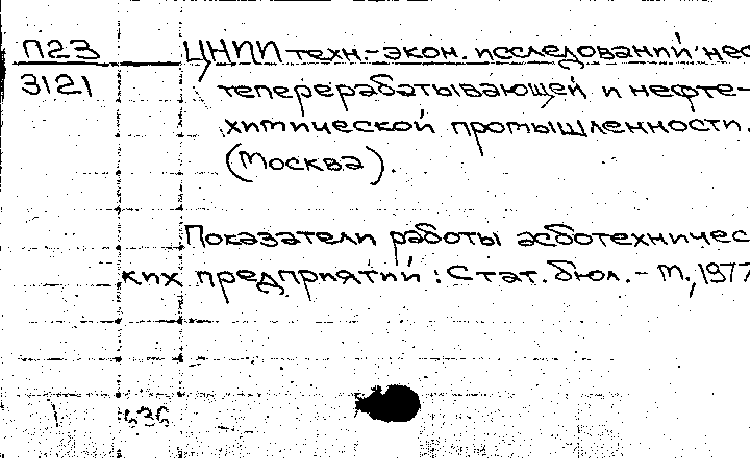 П23
3121
ЦНИИ техн.-экон. исследований неф
теперерабатывающей и нефте-
химической промышленности.
(Москва).
Показатели работы асботехничес
ких предприятий: Стат. бюл. - М., 1977
636